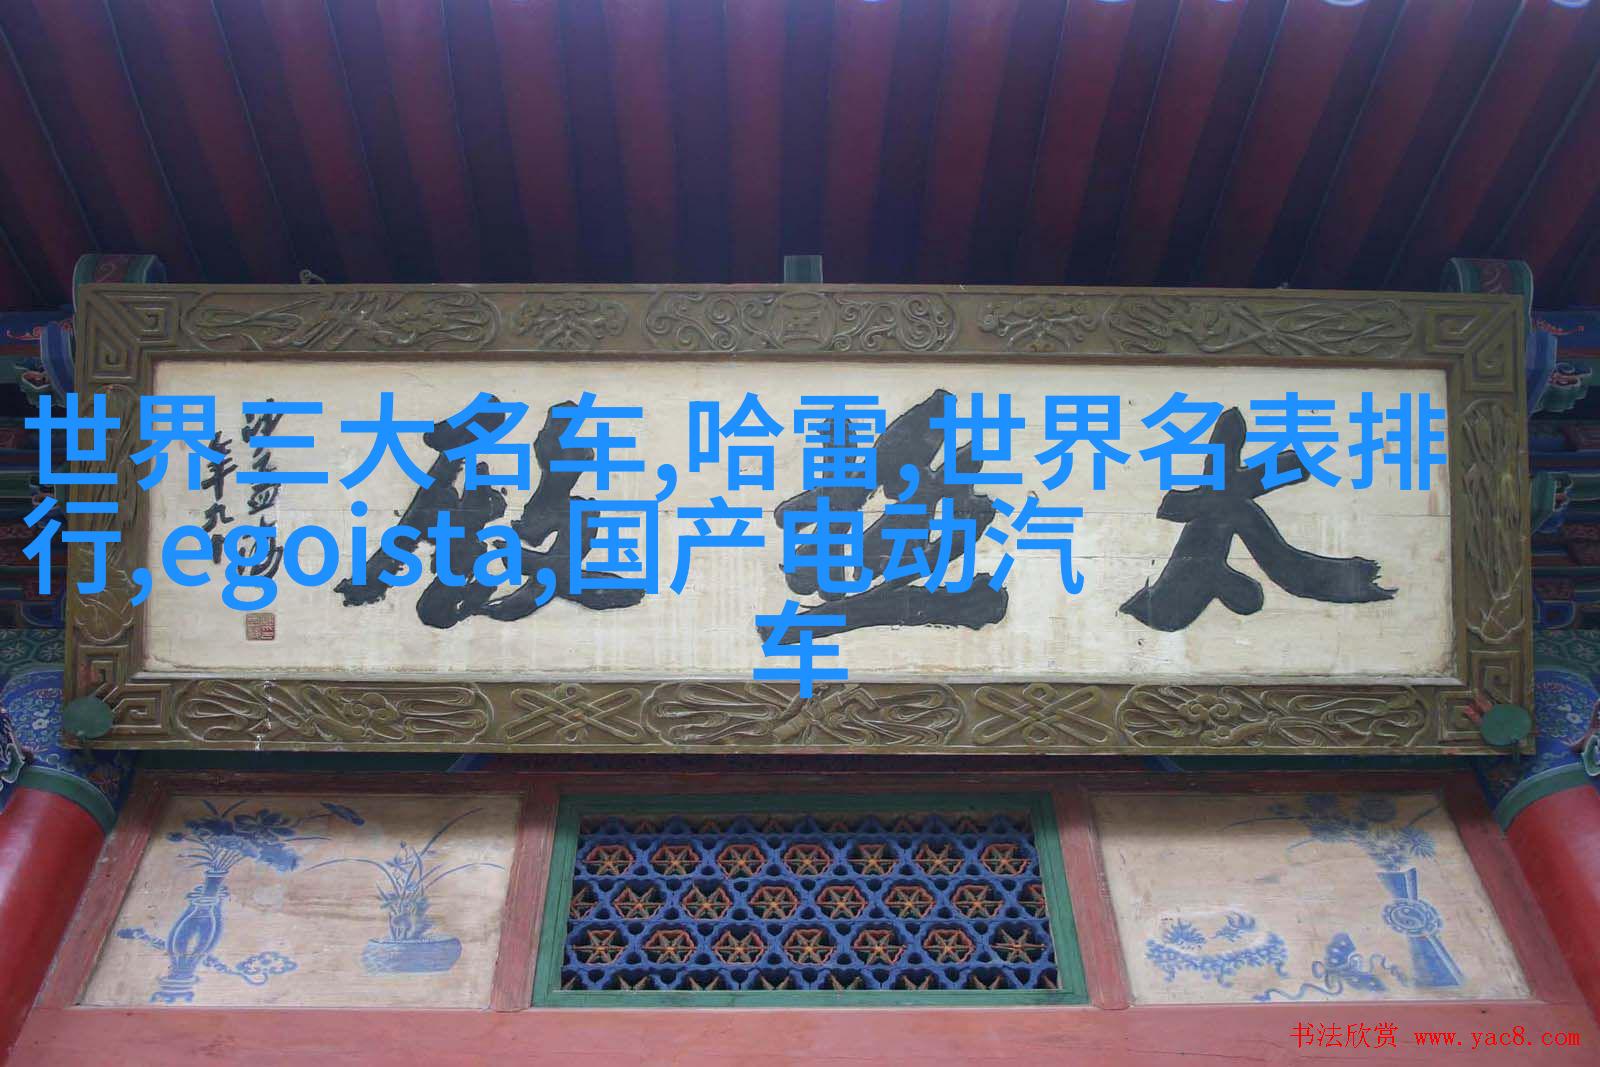 世界三大名车,哈雷,世界名表排
行,egoista,国产电动汽
车
太极殿
书法欣赏 www.yac8.com